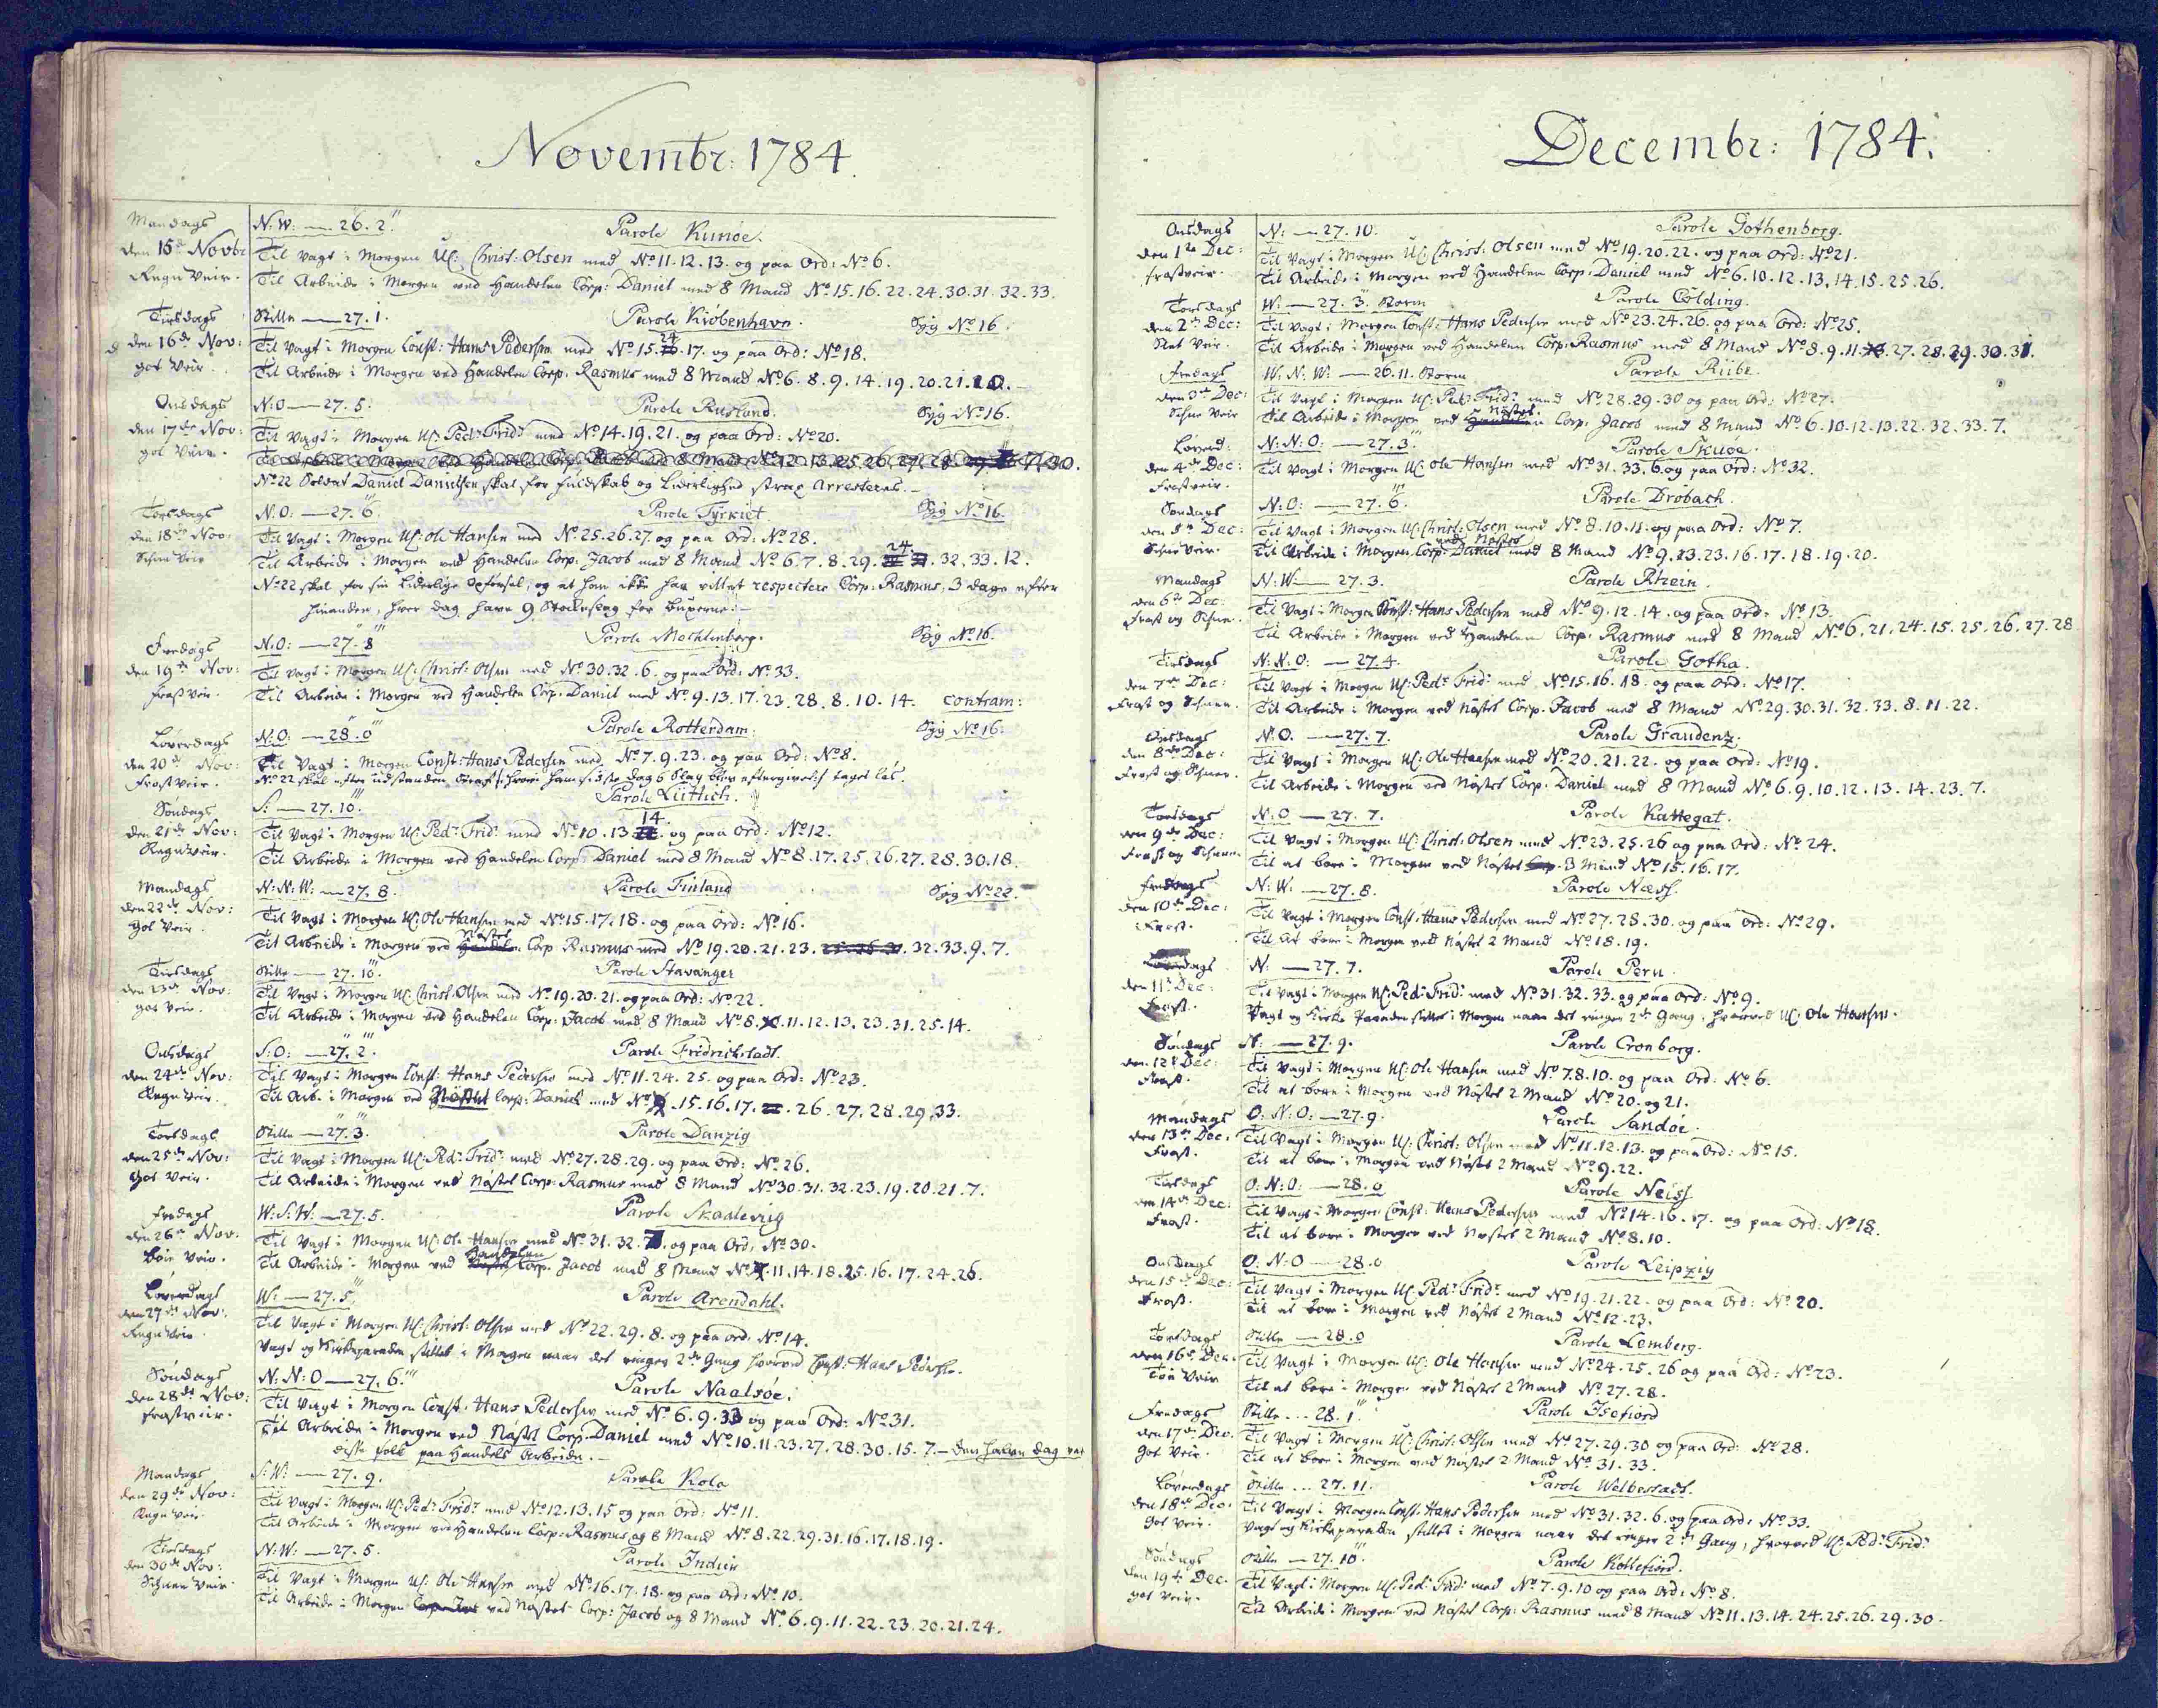 Novembr: 1784.
Mandags N:W: — 26. 2." Parole Kunöe.
den 15de Novbr Til Vagt i Morgen UC: Christ: Olsen med No 11. 12. 13. og paa Ord: No 6.
Regn Veir. Til Arbeide i Morgen ved Handelen Corp: Daniel med 8 Mand No 15. 16. 22. 24. 30. 31. 32. 33.
Tirsdags Stille — 27. 1. Parole Kiöbenhavn. Syg No 16.
den 16de Nov: Til Vagt i Morgen Const: Hans Pedersen med No 15. 24. 17. og paa Ord: No 18.
got Veir. Til Arbeide i Morgen ved Handelen Corp: Rasmus med 8 Mand No 6. 8. 9. 14. 19. 20. 21. 10.
Onsdags N:O — 27. 5. Parole Rusland. Syg No 16.
den 17de Nov: Til Vagt i Morgen UC: Pedr Fridr med No 14. 19. 21. og paa Ord: No 20.
got Veir.
No 22 Soldat Daniel Danielsen skal for fuldskab og Liderlighed strax Arresteres.
Torsdags N:O: — 27. 6. Parole Tyrkiet. Syg No 16.
den 18de Nov: Til Vagt i Morgen UC: Ole Hansen med No 25. 26. 27. og paa Ord: No 28.
Schne Veir Til Arbeide i Morgen ved Handelen Corp. Jacob med 8 Mand No 6. 7. 8. 29. 24. 32. 33. 12.
No 22 skal for sin Liderlige Opførsel, og at han ikke har villet respectere Corp: Rasmus, 3 dage efter
hinanden, hver dag have 9 Stokeslag for buxerne. —
Fredags N:O: — 27. 8 Parole Mechlenbörg. Syg No 16.
den 19de Nov: Til Vagt i Morgen UC: Christ: Olsen med No 30. 32. 6. og paa Ord: No 33.
frost Veir. Til Arbeide i Morgen ved Handelen Corp: Daniel med No 9. 13. 17. 23. 28. 8. 10. 14. contram:
Löverdags N:O: — 28. 0 Parole Rotterdam. Syg No 16.
den 20de Nov: Til Vagt i Morgen Const: Hans Pedersen med No 7. 9. 23. og paa Ord: No 8.
Frost Veir. No 22 skal efter udstanden Straf |: hvoraf ham sidste dag 6 Slag blev eftergivet :| taget lös.
Söndags S: — 27. 10. Parole Lüttich.
den 21de Nov: Til Vagt i Morgen UC: Pedr Fridr med No 10. 13. 14. og paa Ord: No 12.
Regn Veir. Til Arbeide i Morgen ved Handelen Corp: Daniel med 8 Mand No 8. 17. 25. 26. 27. 28. 30. 18.
Mandags N:N:W: — 27. 8. Parole Finland Syg No 22.
den 22de Nov: Til Vagt i Morgen UC: Ole Hansen med No 15. 17. 18. og paa Ord: No 16.
Got Veir. Til Arbeide i Morgen ved Nöstet Corp Rasmus med No 19. 20. 21. 23. 32. 33. 9. 7.
Tirsdags Stille — 27. 10. Parole Stavanger
den 23de Nov: Til Vagt i Morgen UC: Christ: Olsen med No 19. 20. 21. og paa Ord: No 22.
got Veir. Til Arbeide i Morgen ved Handelen Corp: Jacob med 8 Mand No 8. 11. 12. 13. 23. 31. 25. 14.
Onsdags S:O: — 27. 2. Parole Fridrichstadt.
den 24de Nov: Til Vagt i Morgen Const: Hans Pedersen med No 11. 24. 25. og paa Ord: No 23.
Regn Veir. Til Arb. i Morgen ved Nöstet Corp: Daniel med No 15. 16. 17. 26. 27. 28. 29. 33.
Torsdags Stille — 27. 3. Parole Danzig
den 25de Nov: Til Vagt i Morgen UC: Pedr Fridr med No 27. 28. 29. og paa Ord: No 26.
Got Veir. Til Arbeide i Morgen ved Nöstet Corp: Rasmus med 8 Mand No 30. 31. 32. 23. 19. 20. 21. 7.
Fredags W:S:W: — 27. 5. Parole Skaalevig
den 26de Nov: Til Vagt i Morgen UC: Ole Hansen med No 31. 32. 7. og paa Ord: No 30.
Veir. Til Arbeide i Morgen ved Handelen Corp. Jacob med 8 Mand No 11. 14. 18. 25. 16. 17. 24. 26.
Löverdags W: — 27. 5. Parole Arendahl.
den 27de Nov: Til Vagt i Morgen UC: Christ: Olsen med No 22. 29. 8. og paa Ord: No 14.
Regn Veir. Vagt og Kirkeparaden stilles i Morgen naar det ringer 2de Gang hvorved Const: Hans Pedersen.
Söndags N:N:O — 27. 6. Parole Naalsöe.
den 28de Nov: Til Vagt i Morgen Const: Hans Pedersen med No 6. 9. 33 og paa Ord: No 31.
frost veir. Til Arbeide i Morgen ved Nöstet Corp: Daniel med No 10. 11. 23. 27. 28. 30. 15. 7. — den halve dag var
disse folk paa Handels Arbeide. —
Mandags S:W: — 27. 9. Parole Kola
den 29de Nov: Til Vagt i Morgen UC: Pedr Fridr med No 12. 13. 15 og paa Ord: No 11.
Regn Veir. Til Arbeide i Morgen ved Handelen Corp: Rasmus og 8 Mand No 8. 22. 29. 31. 16. 17. 18. 19.
Tirsdags N:W: — 27. 5. Parole Indien
den 30de Nov: Til Vagt i Morgen UC: Ole Hansen med No 16. 17. 18. og paa Ord: No 10.
Schnee Veir. Til Arbeide i Morgen ved Nöstet Corp: Jacob og 8 Mand No 6. 9. 11. 22. 23. 20. 21. 24.
Decembr: 1784.
Onsdags N: — 27. 10. Parole Gothenborg.
den 1ste Dec: Til Vagt i Morgen UC: Christ: Olsen med No 19. 20. 22. og paa Ord: No 21.
frostveir. Til Arbeide i Morgen ved Handelen Corp: Daniel med No 6. 10. 12. 13. 14. 15. 25. 26.
Torsdags W: — 27. 3. Storm Parole Colding.
den 2den Dec: Til Vagt i Morgen Const: Hans Pedersen med No 23. 24. 26. og paa Ord: No 25.
Veir. Til Arbeide i Morgen ved Handelen Corp: Rasmus med 8 Mand No 8. 9. 11. 27. 28. 29. 30. 31.
Fredags W:N:W: — 26. 11. Storm Parole Riibe.
den 3de Dec: Til Vagt i Morgen UC: Pedr Fridr med No 28. 29. 30 og paa Ord: No 27.
Schne Veir Til Arbeide i Morgen ved Nöstet Corp: Jacob med 8 Mand No 6. 10. 12. 13. 22. 32. 33. 7.
Löverd: N:N:O: — 27. 3. Parole Skuöe.
den 4de Dec: Til Vagt i Morgen UC: Ole Hansen med No 31. 33. 6. og paa Ord: No 32.
Frostveir.
Söndags N:O: — 27. 6. Parole Dröbach.
den 5te Dec: Til Vagt i Morgen UC: Christ: Olsen med No 8. 10. 11. og paa Ord: No 7.
Schne Veir. Til Arbeide i Morgen ved Nöstet Corp: Daniel med 8 Mand No 9. 13. 23. 16. 17. 18. 19. 20.
Mandags N:W: — 27. 3. Parole Rhein.
den 6te Dec: Til Vagt i Morgen Const: Hans Pedersen med No 9. 12. 14. og paa Ord: No 13.
Frost og Schnee. Til Arbeide i Morgen ved Handelen Corp: Rasmus med 8 Mand No 6. 21. 24. 15. 25. 26. 27. 28
Tirsdags N:N:O: — 27. 4. Parole Gotha.
den 7de Dec: Til Vagt i Morgen UC: Pedr Fridr med No 15. 16. 18. og paa Ord: No 17.
Frost og Schnee. Til Arbeide i Morgen ved Nöstet Corp. Jacob med 8 Mand No 29. 30. 31. 32. 33. 8. 11. 22.
Onsdags N:O. — 27. 7. Parole Graudenz.
den 8de Dec: Til Vagt i Morgen UC: Ole Hansen med No 20. 21. 22. og paa Ord: No 19.
Frost og Schnee. Til Arbeide i Morgen ved Nöstet Corp: Daniel med 8 Mand No 6. 9. 10. 12. 13. 14. 23. 7.
Torsdags N:O — 27. 7. Parole Kattegat.
den 9de Dec: Til Vagt i Morgen UC: Christ: Olsen med No 23. 25. 26 og paa Ord: No 24.
Frost og Schnee. Til at bore i Morgen ved Nöstet 3 Mand No 15. 16. 17.
Fredags N:W: — 27. 8. Parole Næss.
den 10de Dec: Til Vagt i Morgen Const: Hans Pedersen med No 27. 28. 30. og paa Ord: No 29.
Frost. Til at bore i Morgen ved Nöstet 2 Mand No 18. 19.
Löverdags N: — 27. 7. Parole Peru.
den 11te Dec: Til Vagt i Morgen UC: Pedr Fridr med No 31. 32. 33. og paa Ord: No 9.
Frost. Vagt og Kirke Paraden stilles i Morgen naar det ringer 2de Gang, hvorved UC: Ole Hansen.
Söndags N: — 27. 9. Parole Cronborg.
den 12te Dec: Til Vagt i Morgen UC: Ole Hansen med No 7. 8. 10. og paa Ord: No 6.
Frost. Til at bore i Morgen ved Nöstet 2 Mand No 20. og 21.
Mandags O:N:O: — 27. 9. Parole Sandöe.
den 13de Dec: Til Vagt i Morgen UC: Christ: Olsen med No 11. 12. 13. og paa Ord: No 15.
Frost. Til at bore i Morgen ved Nöstet 2 Mand No 9. 22.
Tirsdags O:N:O: — 28. 0 Parole Neiss
den 14de Dec: Til Vagt i Morgen Const: Hans Pedersen med No 14. 16. 17. og paa Ord: No 18.
Frost. Til at bore i Morgen ved Nöstet 2 Mand No 8. 10.
Onsdags O:N:O — 28. 0 Parole Leipzig
den 15de Dec: Til Vagt i Morgen UC: Pedr Fridr med No 19. 21. 22. og paa Ord: No 20.
Frost. Til at bore i Morgen ved Nöstet 2 Mand No 12. 23.
Torsdags Stille — 28. 0 Parole Lemberg.
den 16de Dec. Til Vagt i Morgen UC: Ole Hansen med No 24. 25. 26 og paa Ord: No 23.
Töe Veir Til at bore i Morgen ved Nöstet 2 Mand No 27. 28.
Fredags Stille ... 28. 1. Parole Isefiord
den 17de Dec. Til Vagt i Morgen UC: Christ: Olsen med No 27. 29. 30 og paa Ord: No 28.
Got Veir. Til at bore i Morgen ved Nöstet 2 Mand No 31. 33.
Löverdags Stille ... 27. 11. Parole Welbestadt.
den 18de Dec: Til Vagt i Morgen Const: Hans Pedersen med No 31. 32. 6. og paa Ord: No 33.
Got Veir. Vagt og Kirkeparaden stilles i Morgen naar det ringer 2de Gang, hvorved UC: Pedr Fridr
Söndags Stille — 27. 10. Parole Kollefiord.
den 19de Dec. Til Vagt i Morgen UC: Pedr Fridr med No 7. 9. 10 og paa Ord: No 8.
got Veir. Til Arbeide i Morgen ved Nöstet Corp: Rasmus med 8 Mand No 11. 13. 14. 24. 25. 26. 29. 30.